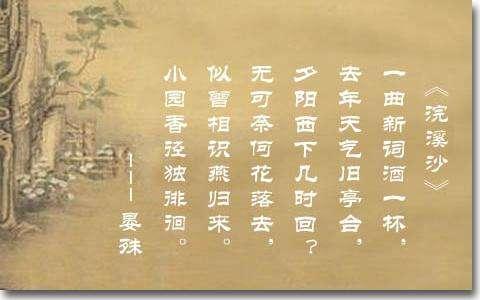 《浣溪沙》
一曲新词酒一杯，
去年天气旧亭台，
夕阳西下几时回？
无可奈何花落去，
似曾相识燕归来。
小园香径独徘徊。
---晏殊